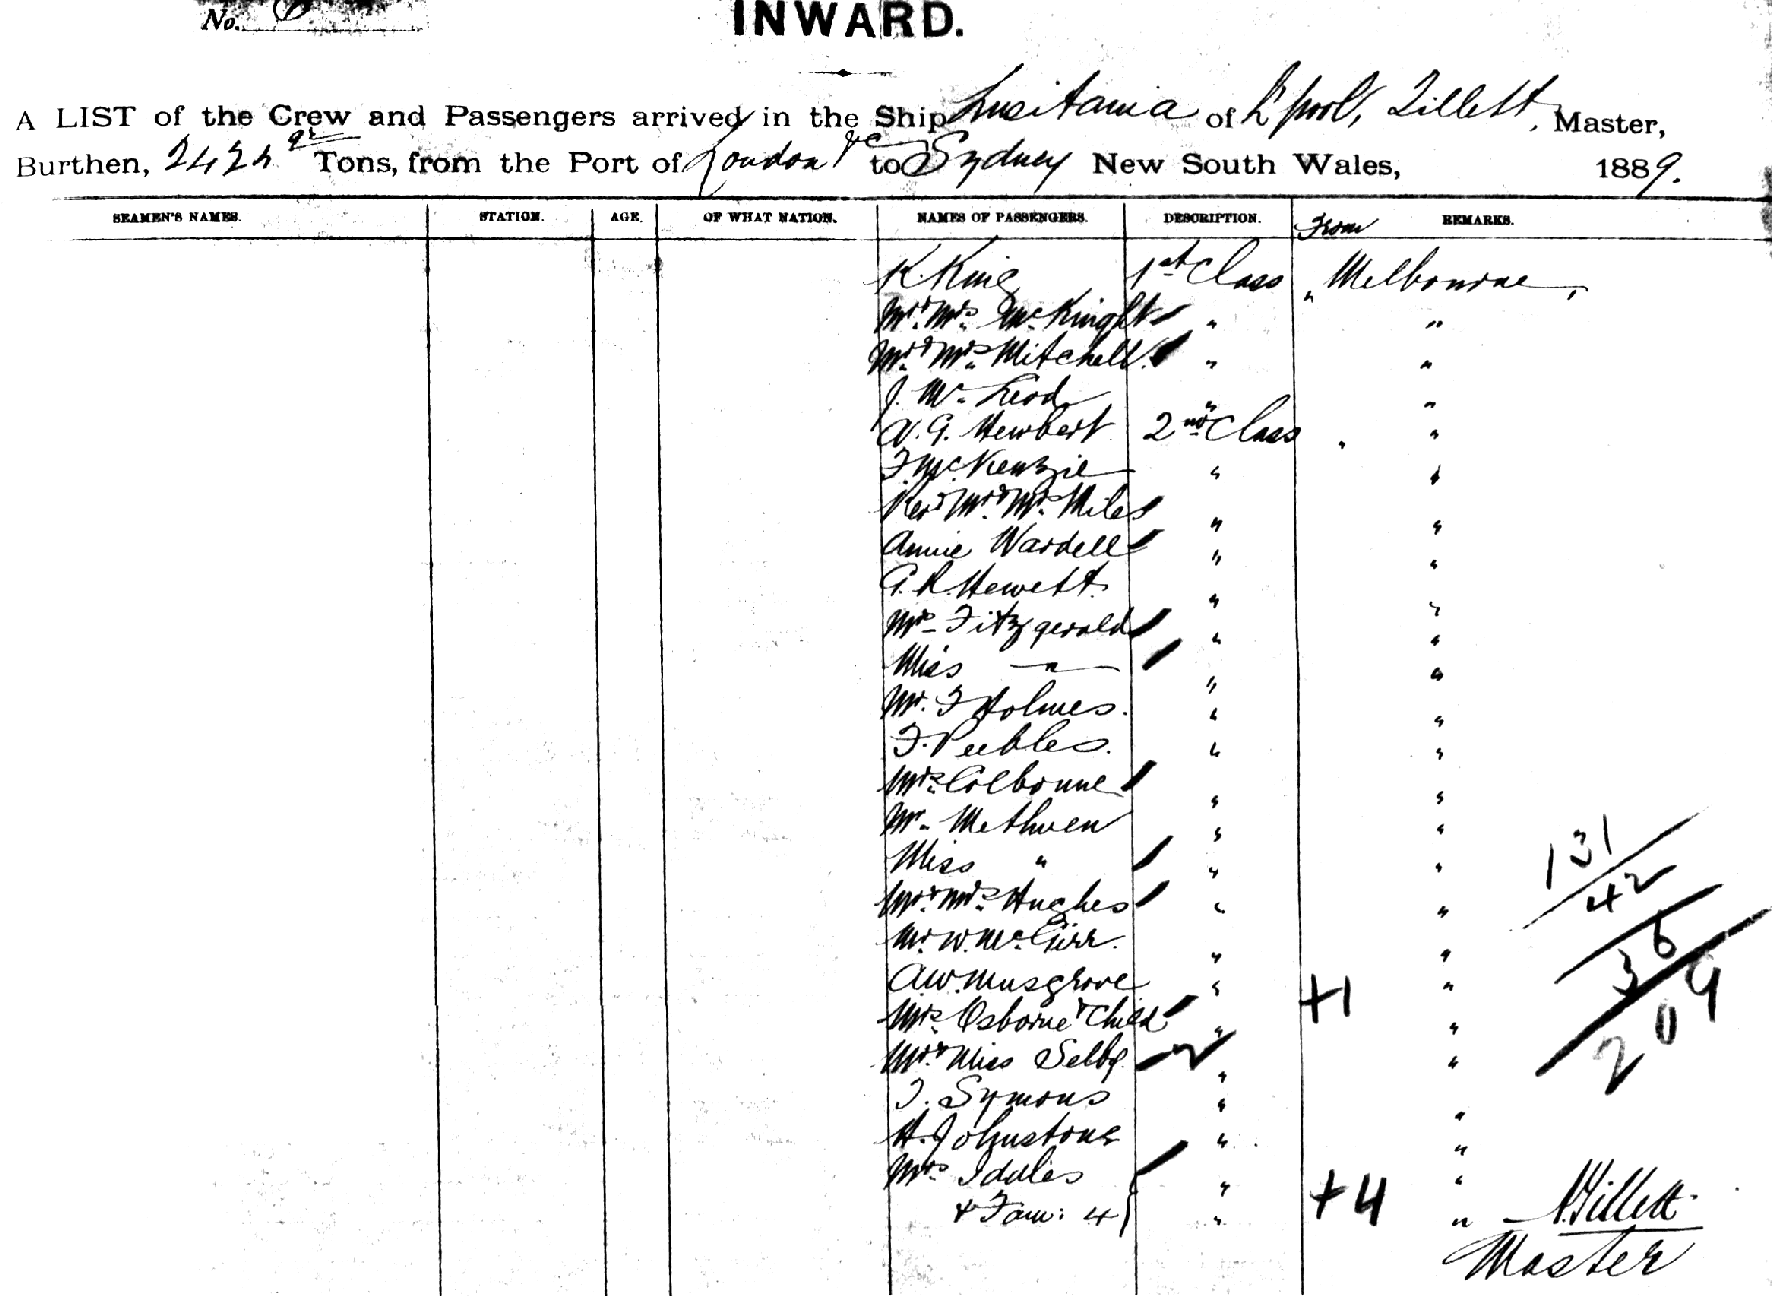 No.
INWARD.
A LIST of the Crew and Passengers arrived in the Ship Lusitania of L'pool, Tillett, Master,
Burthen, 2424 Tons, from the Port of London &c to Sydney New South Wales, 1889.
SEAMEN'S NAMES. STATION. AGE. OF WHAT NATION. NAMES OF PASSENGERS. DESCRIPTION. From REMARKS.
K. King 1st Class " Melbourne,
Mr & Mrs McKnight " "
Mr & Mrs Mitchell. " "
J. McLeod " "
A. G. Hewbert 2nd Class " "
F. McKenzie " "
Revd Mr & Mrs Miles " "
Annie Wardell " "
G. R. Hewett. " "
Mrs Fitzgerald " "
Miss — " — " "
Mr. F Holmes. " "
F. Peebles. " "
Mrs. Colbourne " "
Mr. Methven " "
Miss " " "
Mr & Mrs. Hughes " "
Mr W. McGirr. " "
A.W. Musgrove " "
Mrs. Osborne & Child " +1 "
Mr & Miss Selby " "
T. Symons " "
H. Johnstone " "
Mrs Iddles " "
& Fam: 4 } " +4 "
131
42
36
209
A. Tillett
Master